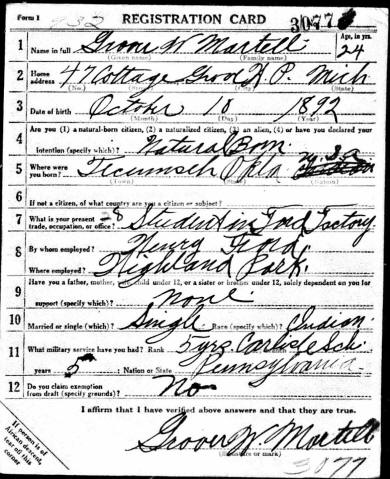 Form 1 932 REGISTRATION CARD 3077
1 Name in full Grover W Martell Age, in yrs. 24
(Given name) (Family name)
2 Home address 47 Cottage Grove H. P. Mich
(No.) (Street) (City) (State)
3 Date of birth October 10 1892
(Month) (Day) (Year)
4 Are you (1) a natural-born citizen, (2) a naturalized citizen, (3) an alien, (4) or have you declared your
intention (specify which)? Natural Born
5 Where were you born? Tecumseh Okla U.S.A
(Town) (State) (Nation)
6 If not a citizen, of what country are you a citizen or subject?
7 What is your present trade, occupation, or office? -8 Student in Ford Factory
8 By whom employed? Henry Ford
Where employed? Highland Park.
9 Have you a father, mother, wife, child under 12, or a sister or brother under 12, solely dependent on you for
support (specify which)? none
10 Married or single (which)? Single Race (specify which)? Indian
11 What military service have you had? Rank 5 yrs. Carlisle Sch.
years 5 Nation or State Pennsylvania
12 Do you claim exemption from draft (specify grounds)? No
I affirm that I have verified above answers and that they are true.
Grover W. Martell
(Signature or mark)
3077
If person is of African descent, tear off this corner